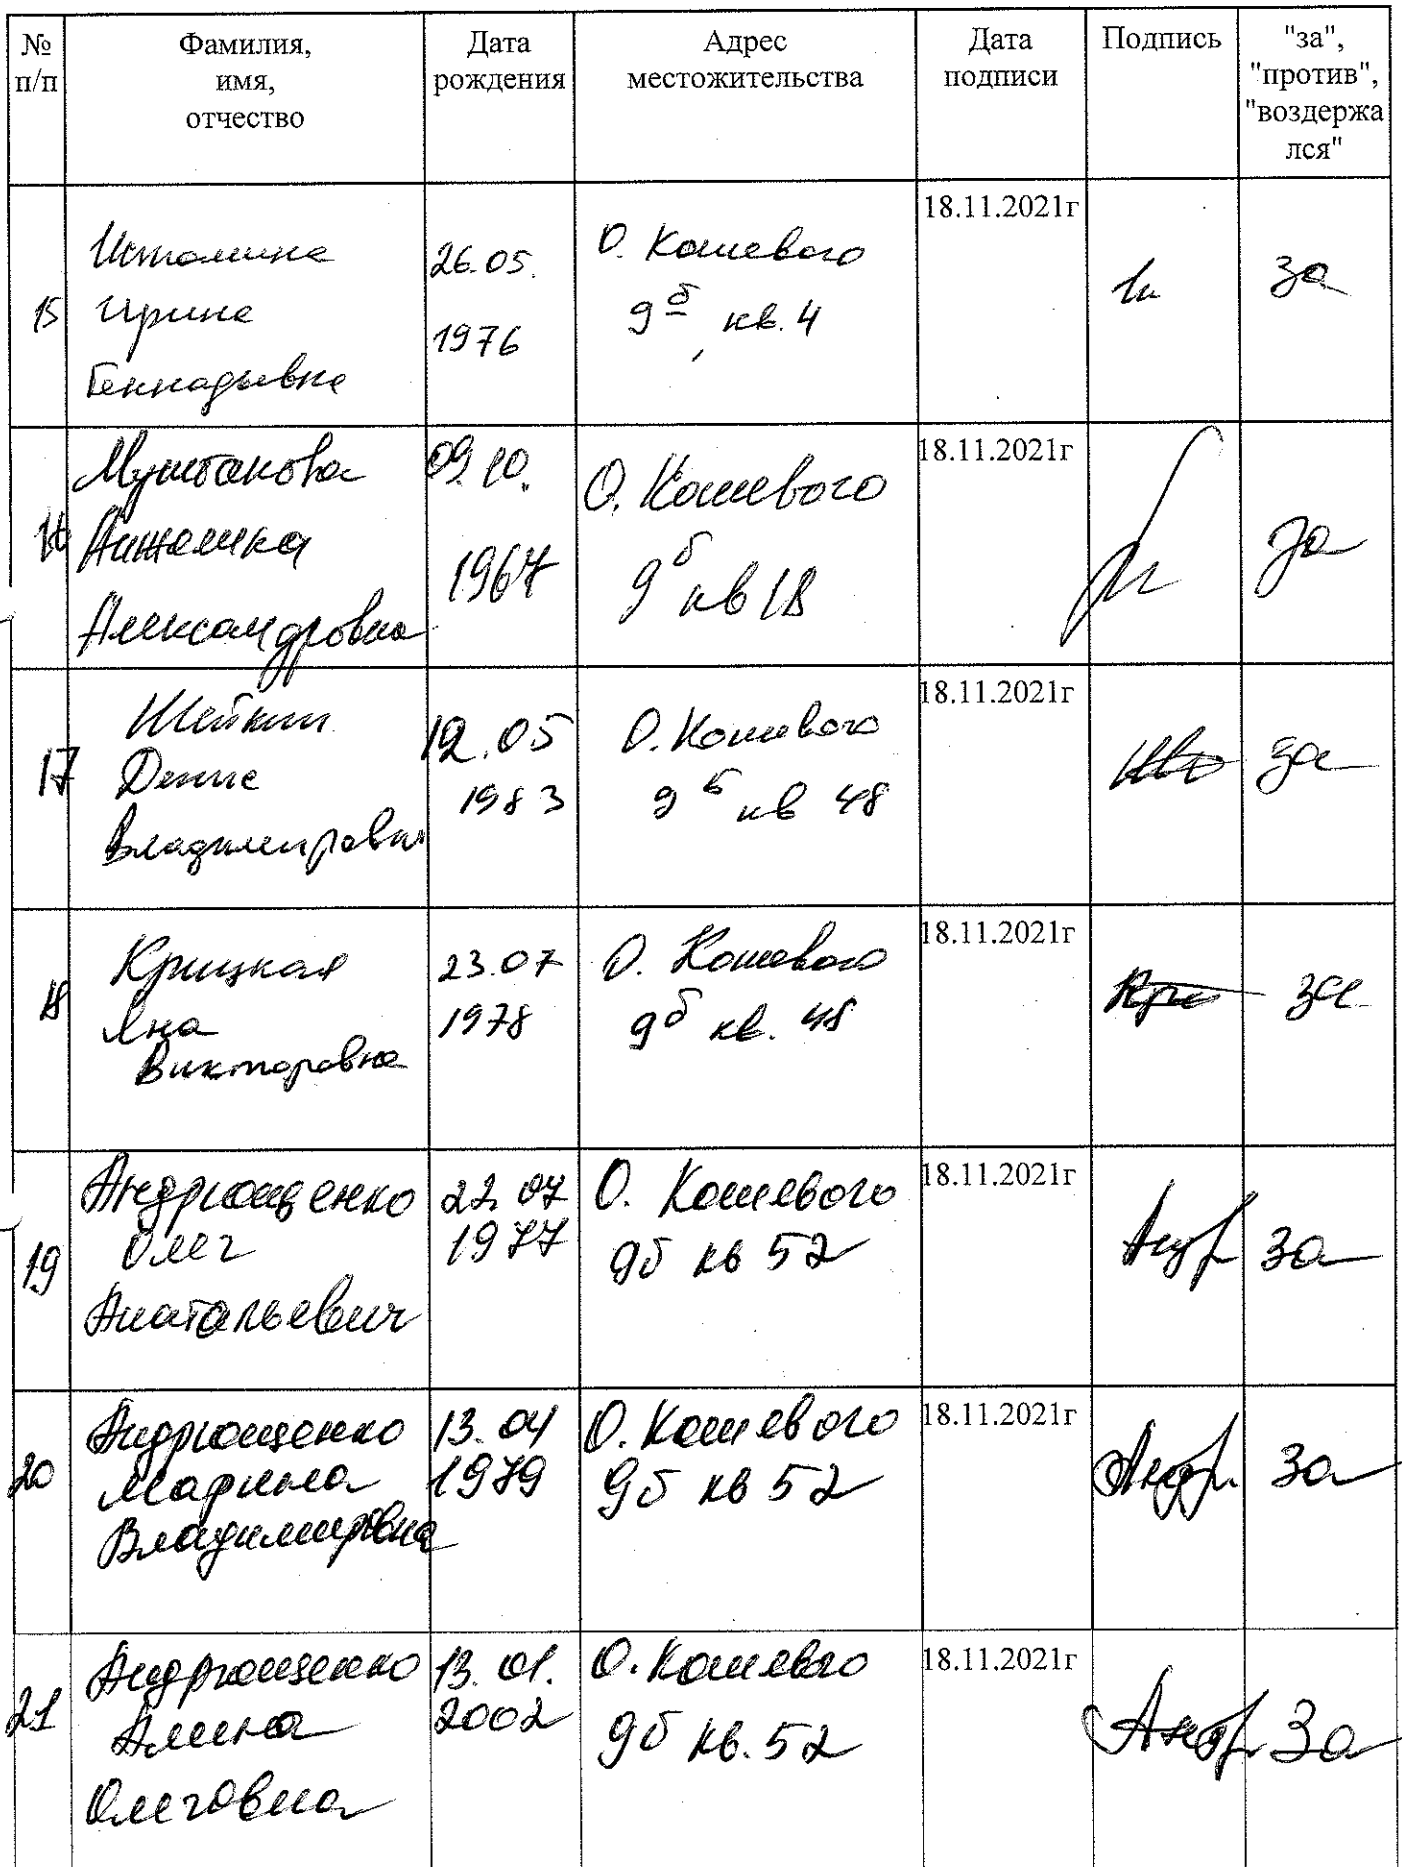 № п/п
Фамилия, имя, отчество
Дата рождения
Адрес местожительства
Дата подписи
Подпись
"за", "против", "воздержался"
15
Истомина
Ирина
Геннадьевна
26.05.
1976
О. Кошевого
9б, кв. 4
18.11.2021г
за
16
Муштакова
Анжелика
Александровна
09.10.
1967
О. Кошевого
9б кв 18
18.11.2021г
за
17
Шейкин
Денис
Владимирович
12.05
1983
О. Кошевого
9б кв 48
18.11.2021г
за
18
Крицкая
Яна
Викторовна
23.07
1978
О. Кошевого
9б кв. 48
18.11.2021г
за
19
Андрющенко
Олег
Анатольевич
22.07
1977
О. Кошевого
9б кв 52
18.11.2021г
за
20
Андрющенко
Марина
Владимировна
13.04
1979
О. Кошевого
9б кв 52
18.11.2021г
за
21
Андрющенко
Алина
Олеговна
13.01.
2002
О. Кошевго
9б кв. 52
18.11.2021г
За